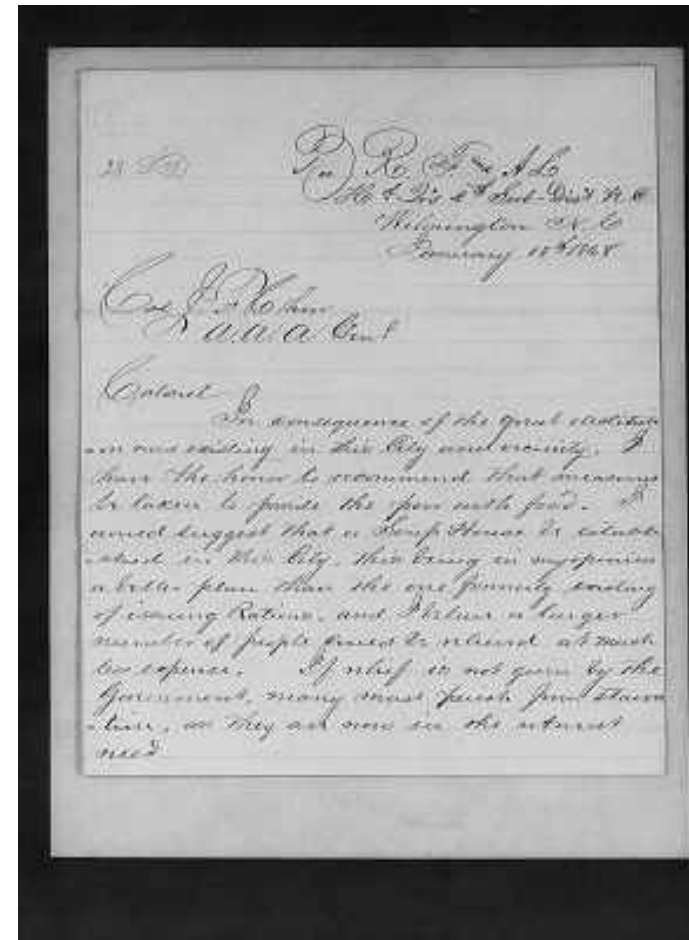 Bu R. F. and A. L.
Hd Qrs 4th Sub-Dist N. C.
Wilmington N C
1868
Col
A. A. A. Genl
Colonel
In consequence of the great destitut-
-ion now existing in this City and vicinity. I
have the honor to recommend that measures
be taken to provide the poor with food. I
would suggest that a Soup House be establ-
-ished in this City, this being in my opinion
a better plan than the one formerly existing
of issuing Rations, and I believe a larger
number of people could be relieved at much
less expense. If relief is not given by the
Government, many must perish from starva
-tion, as they are now in the utmost
need